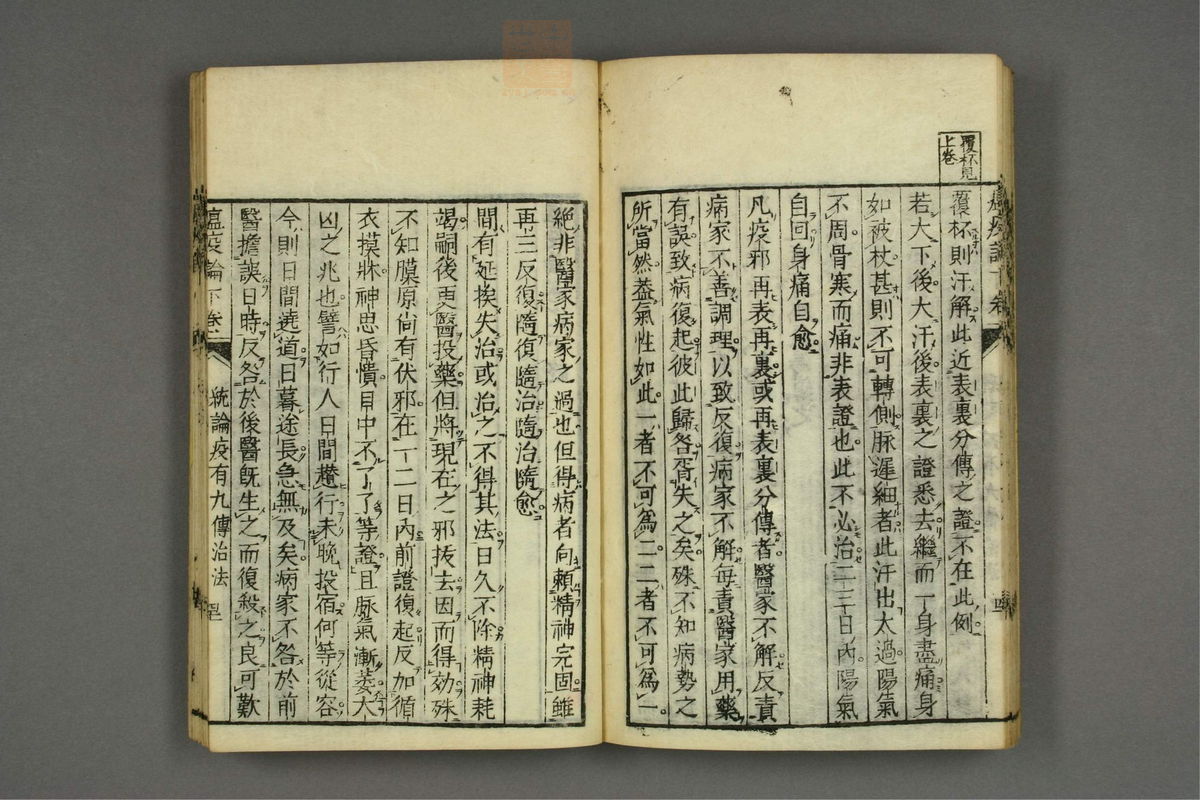 覆杯見
上卷
覆杯則汗解此近表裏分傳之證不在此例
若大下後大汗後表裏之證悉去繼而一身盡痛身
如被杖甚則不可轉側脉遲細者此汗出太過陽氣
不周骨寒而痛非表證也此不必治二三日內陽氣
自回身痛自愈
凡疫邪再表再裏或再表裏分傳者醫家不解反責
病家不善調理以致反復病家不解每責醫家用藥
有誤致病復起彼此歸咎胥失之矣殊不知病勢之
所當然葢氣性如此一者不可爲二二者不可爲一
絶非醫家病家之過也但得病者向頼精神完固雖
再三反復隨復隨治隨治隨愈
間有延挨失治或治之不得其法日久不除精神耗
竭嗣後更醫投藥但將現在之邪拔去因而得効殊
不知膜原尚有伏邪在一二日內前證復起反加循
衣摸牀神思昏憒目中不了了等證且脉氣漸萎大
凶之兆也譬如行人日間趲行未晚投宿何等從容
今則日間遶道日暮途長急無及矣病家不咎於前
醫擔誤日時反咎於後醫既生之而復殺之良可歎
瘟疫論下卷
統論疫有九傳治法